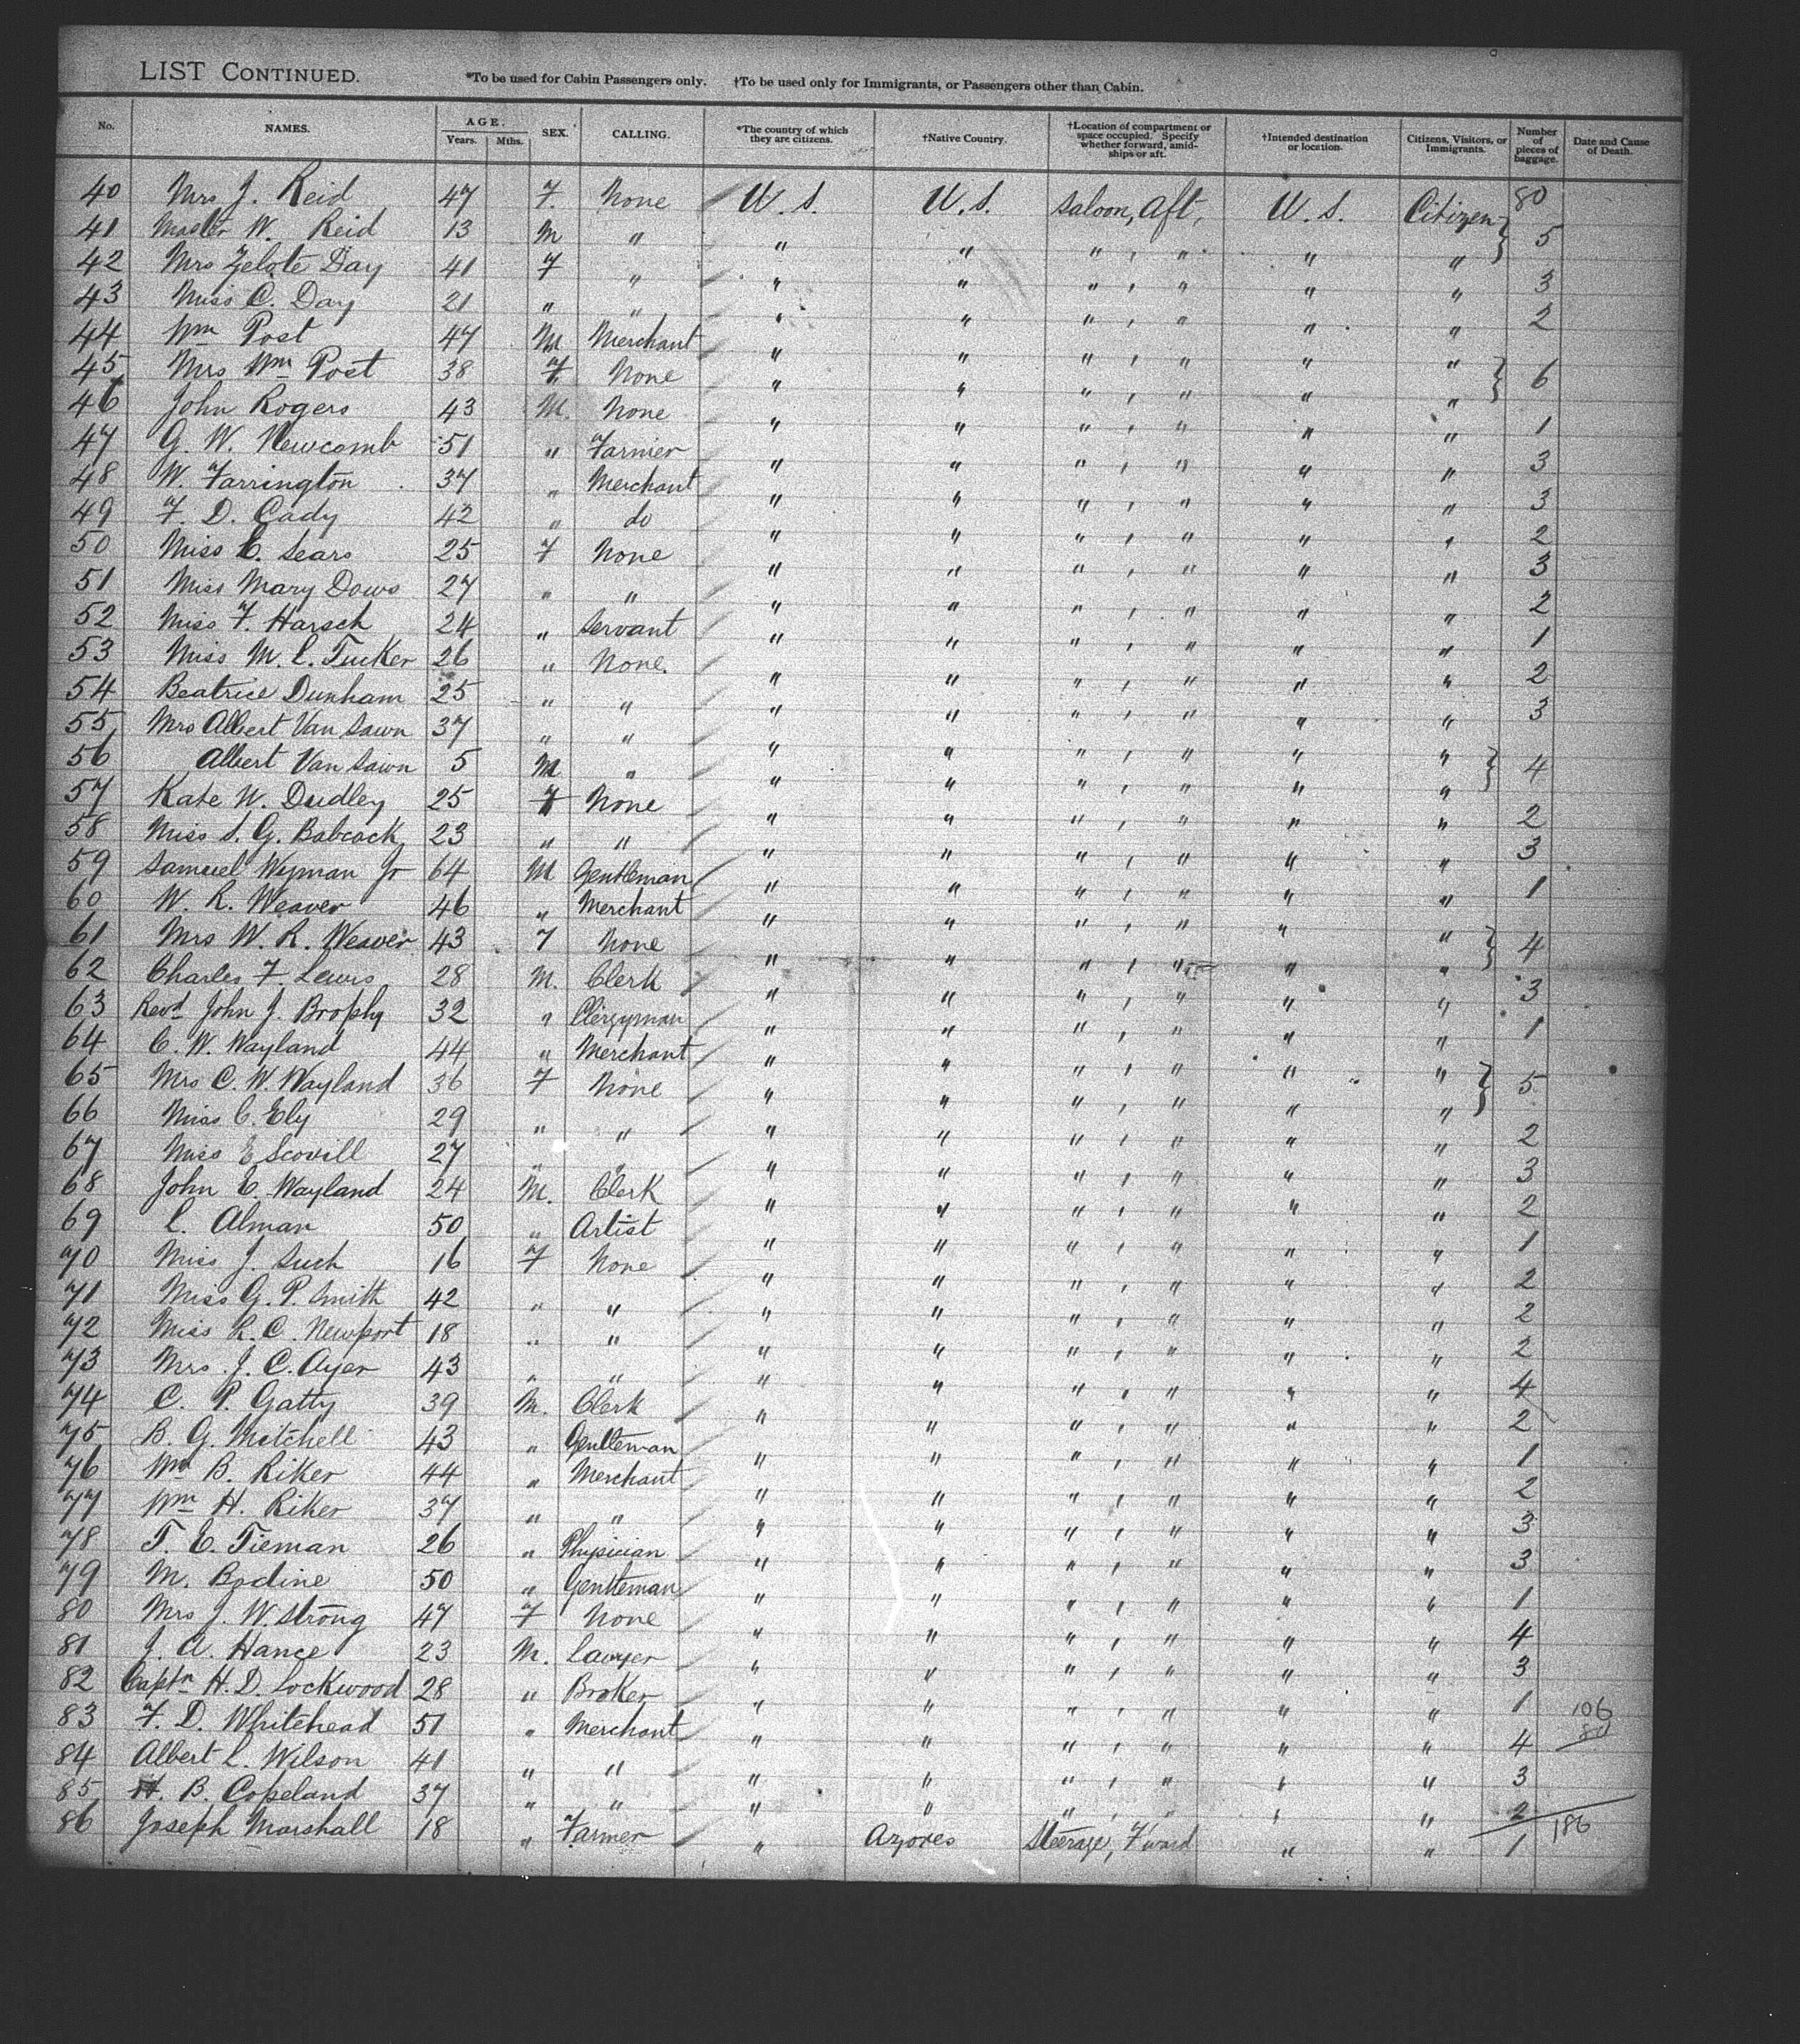 LIST CONTINUED. *To be used for Cabin Passengers only. †To be used only for Immigrants, or Passengers other than Cabin.
No. NAMES. AGE. Years. Mths. SEX. CALLING. *The country of which they are citizens. †Native Country. †Location of compartment or space occupied. Specify whether forward, amidships or aft. †Intended destination or location. Citizens, Visitors, or Immigrants. Number of pieces of baggage. Date and Cause of Death.
80
40 Mrs J. Reid 47 F. None U.S. U.S. Saloon, Aft, U.S. Citizen
41 Master W. Reid 13 M " " " " , " " " 5
42 Mrs Zelote Day 41 F " " " " , " " " 3
43 Miss C. Day 21 " " " " " , " " " 2
44 Wm Post 47 M Merchant " " " , " " "
45 Mrs Wm Post 38 F None " " " , " " " 6
46 John Rogers 43 M. None " " " , " " " 1
47 G. W. Newcomb 51 " Farmer " " " , " " " 3
48 W. Farrington 37 " Merchant " " " , " " " 3
49 F. D. Cady 42 " do " " " , " " " 2
50 Miss C. Sears 25 F None " " " , " " " 3
51 Miss Mary Dows 27 " " " " " , " " " 2
52 Miss F. Harsch 24 " Servant " " " , " " " 1
53 Miss M. L. Tucker 26 " None. " " " , " " " 2
54 Beatrice Dunham 25 " " " " " , " " " 3
55 Mrs Albert Van Sawn 37 " " " " " , " " "
56 Albert Van Sawn 5 M " " " " , " " " 4
57 Kate W. Dudley 25 F None " " " , " " " 2
58 Miss S. G. Babcock 23 " " " " " , " " " 3
59 Samuel Wyman Jr 64 M Gentleman " " " , " " " 1
60 W. R. Weaver 46 " Merchant " " " , " " "
61 Mrs W. R. Weaver 43 F None " " " , " " " 4
62 Charles F. Lewis 28 M. Clerk " " " , " " " 3
63 Revd John J. Brophy 32 " Clergyman " " " , " " " 1
64 C. W. Wayland 44 " Merchant " " " , " " "
65 Mrs C. W. Wayland 36 F None " " " , " " " 5
66 Miss C. Ely 29 " " " " " , " " " 2
67 Miss E Scovill 27 " " " " " , " " " 3
68 John C. Wayland 24 M. Clerk " " " , " " " 2
69 L. Alman 50 " Artist " " " , " " " 1
70 Miss J. Such 16 F None " " " , " " " 2
71 Miss G. P. Smith 42 " " " " " , " " " 2
72 Miss R. C. Newport 18 " " " " " , " " " 2
73 Mrs. J. C. Ayer 43 " " " " " , " " " 4
74 C. P. Gatty 39 M. Clerk " " " , " " " 2
75 B. G. Mitchell 43 " Gentleman " " " , " " " 1
76 Wm B. Riker 44 " Merchant " " " , " " " 2
77 Wm H. Riker 37 " " " " " , " " " 3
78 T. E. Tieman 26 " Physician " " " , " " " 3
79 M. Bodine 50 " Gentleman " " " , " " " 1
80 Mrs J. W. Strong 47 F None " " " , " " " 4
81 J. A. Hance 23 M. Lawyer " " " , " " " 3
82 Captn H. D. Lockwood 28 " Broker " " " , " " " 1 106
83 F. D. Whitehead 51 " Merchant " " " , " " " 4 80
84 Albert L. Wilson 41 " " " " " , " " " 3
85 H. B. Copeland 37 " " " " " , " " " 2
86 Joseph Marshall 18 " Farmer " Azores Steerage, F'ward " " 1 186